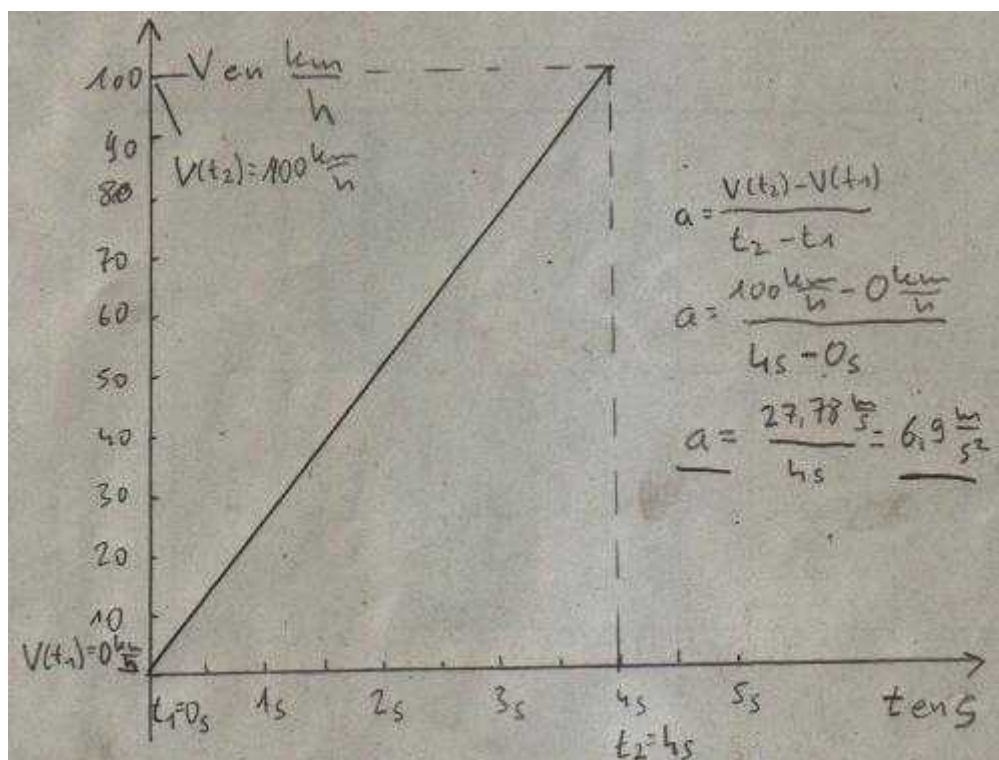 100
V en km/h
V(t₂)=100 km/h
90
80
70
60
50
40
30
20
10
V(t₁)=0 km/h
t₁=0s
1s
2s
3s
4s
5s
t en s
t₂=4s
a = (V(t₂)-V(t₁))/(t₂-t₁)
a = (100 km/h - 0 km/h)/(4s-0s)
a = (27,78 m/s)/(4s) = 6,9 m/s²